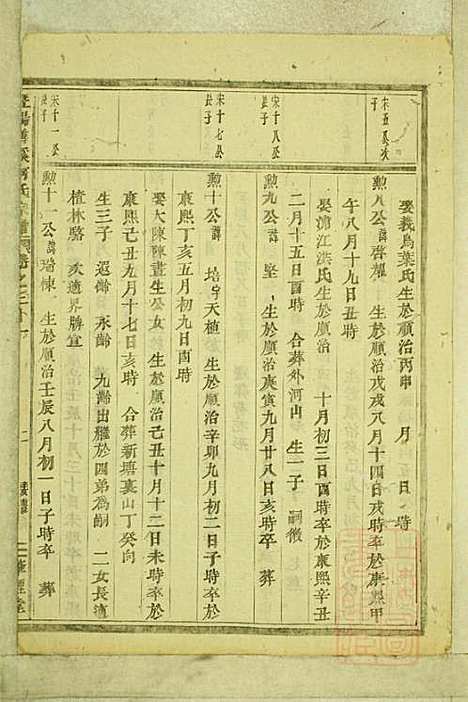 宋五公次子
娶義烏葉氏 生於順治丙申 月 日 時
勲八公諱啓耀 生於順治戊戌八月十四日戌時卒於康熙甲
午八月十九日丑時
娶浦江洪氏生於 十月初三日酉時卒於康熙辛丑
二月十五日酉時 合葬外河山 生一子 嗣徵
宋十八公長子
勲九公諱 堅 生於順治庚寅九月廿八日亥時卒 葬
宋十七公長子
勲十公諱 培字天植 生於順治辛卯九月初二日子時卒於
康熙丁亥五月初九日酉時
娶大陳陳晝生公女 生於順治己丑十月十二日未時卒於
康熙己丑九月十七日亥時 合葬新塘裏山丁癸向
生三子 遐齡 永齡 九齡出繼於四弟為嗣 二女長適
樓林駱 次適界牌宣
宋十一公長子
勲十一公諱瑞棟 生於順治壬辰八月初一日子時卒 葬